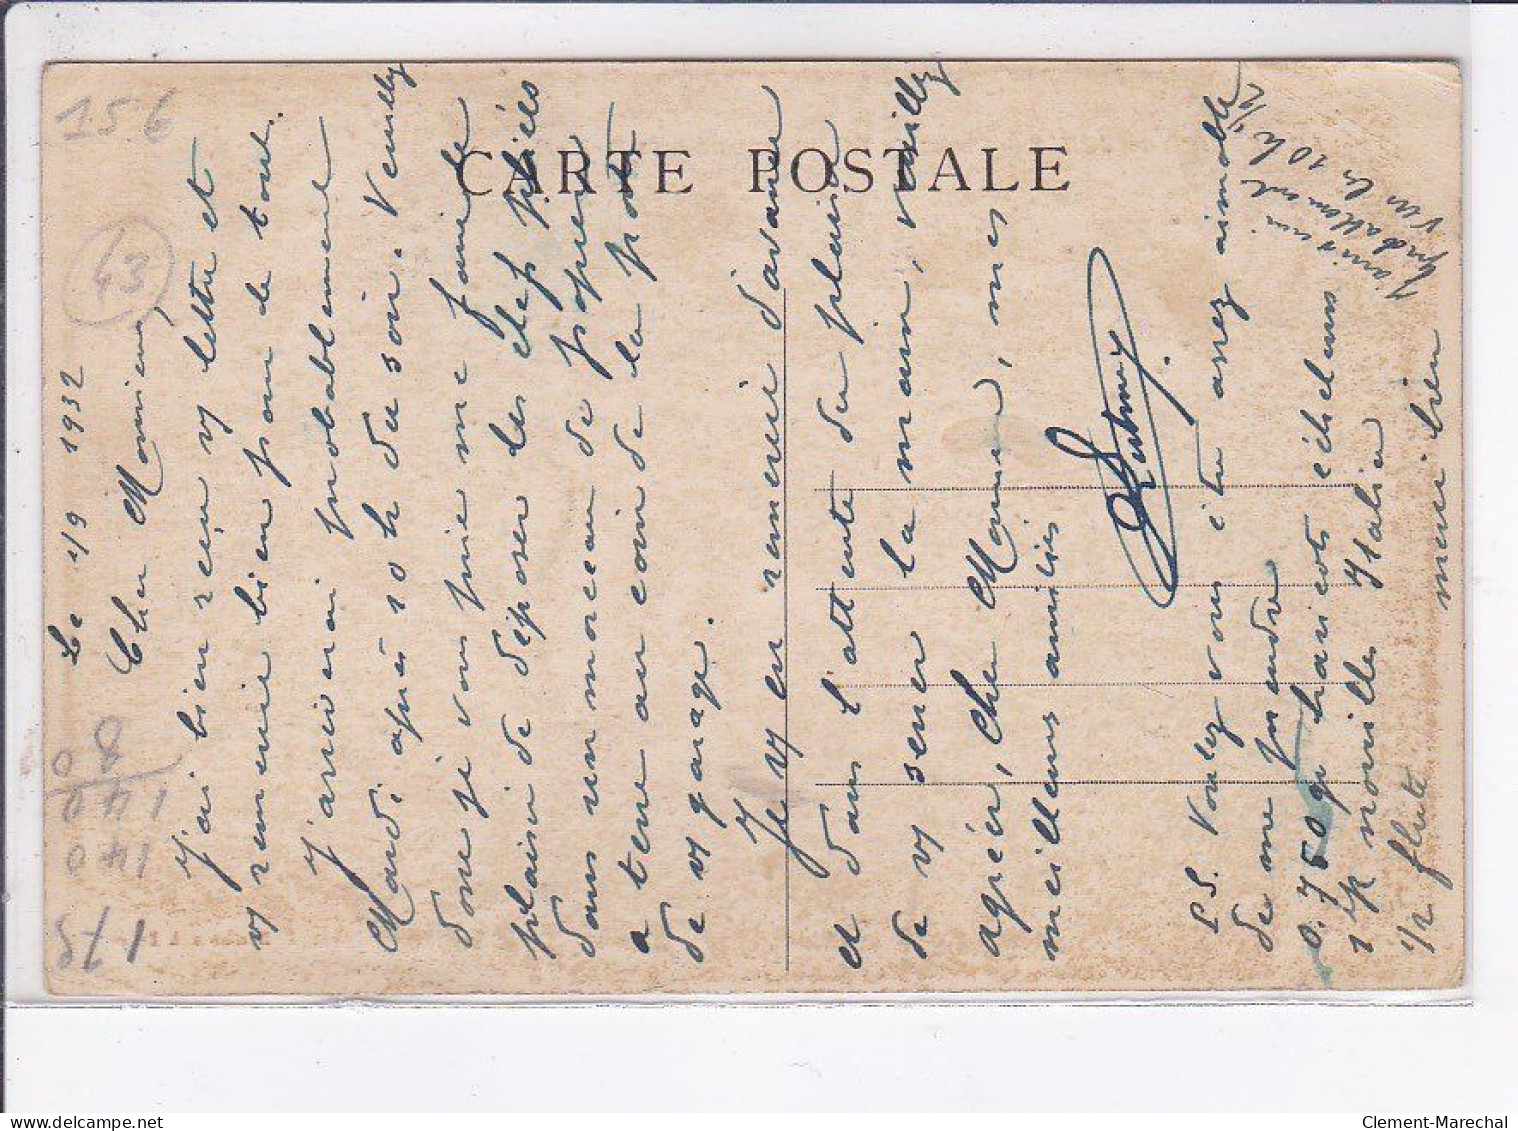 CARTE POSTALE
Le 1/9 1932
Cher Monsieur,
J'ai bien reçu v/ lettre et
v/ remercie bien pour le tout.
J'arriverai probablement
Mardi après 10 h du soir. Veuillez
donc je vous prie me faire le
plaisir de déposer les clefs pliées
dans un morceau de papier
a terre au coin de la porte
de v/ garage.
Je v/ en remercie d'avance
et dans l'attente du plaisir
de v/ serrer la main, veuillez
agréer, cher Monsieur, mes
meilleures amitiés
P.S. Voulez vous être assez aimable
de me prendre
0.750 gr haricots
1 p nouilles Italie
1/2 flute
merci bien
J'arriverai
vers les 10 h 1/2
156
43
80
140
140
175
Clement-Marechal